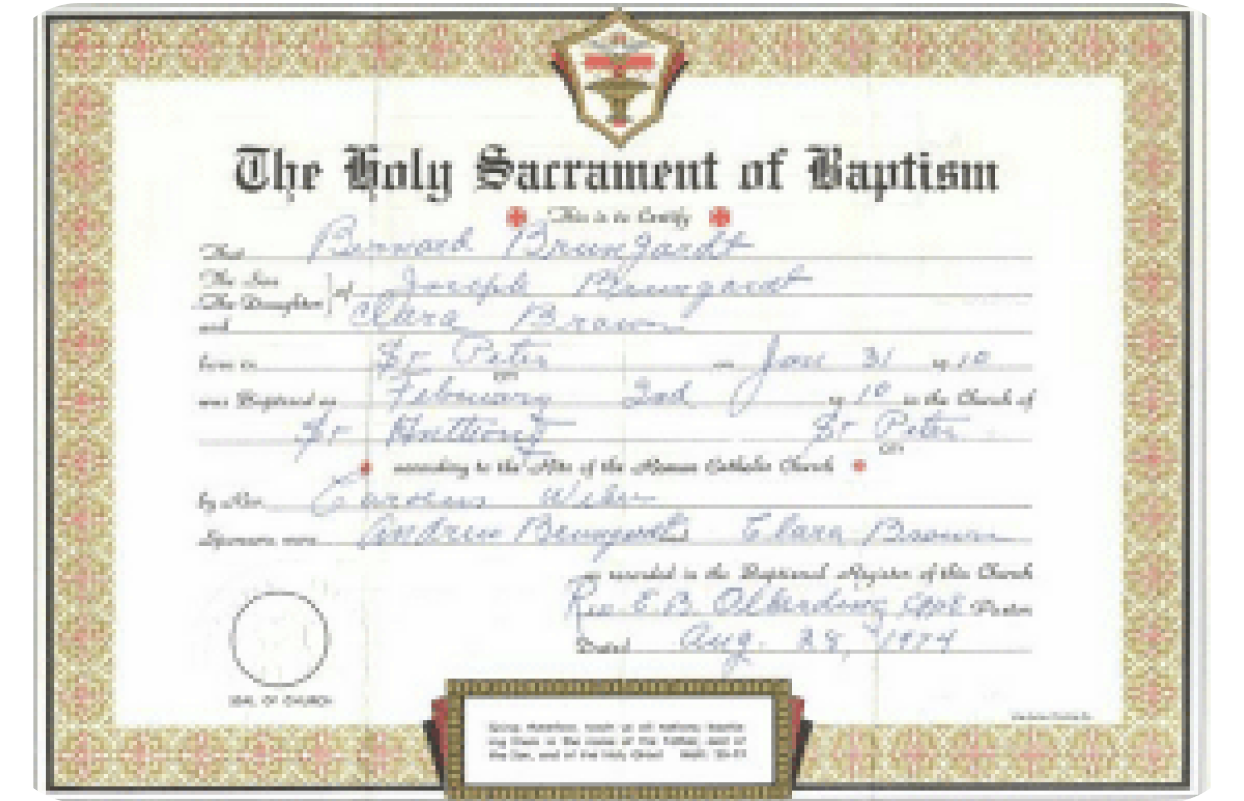 The Holy Sacrament of Baptism
This is to Certify
That Bernard Brungardt
The Son
The Daughter } of Joseph Brungardt
and Clara Brown
born in St Peter on Jan 31 1910
CITY
was Baptized on February 2nd 1910 in the Church of
St Anthony St Peter
CITY
according to the Rite of the Roman Catholic Church
by Rev.
Sponsors were Andrew Brungardt Clara Brown
as recorded in the Baptismal Register of this Church
Rev. E.B. Alberding Pastor
Dated Aug. 28, 1974
SEAL OF CHURCH
Going therefore, teach ye all nations; baptiz-
ing them in the name of the Father, and of
the Son, and of the Holy Ghost